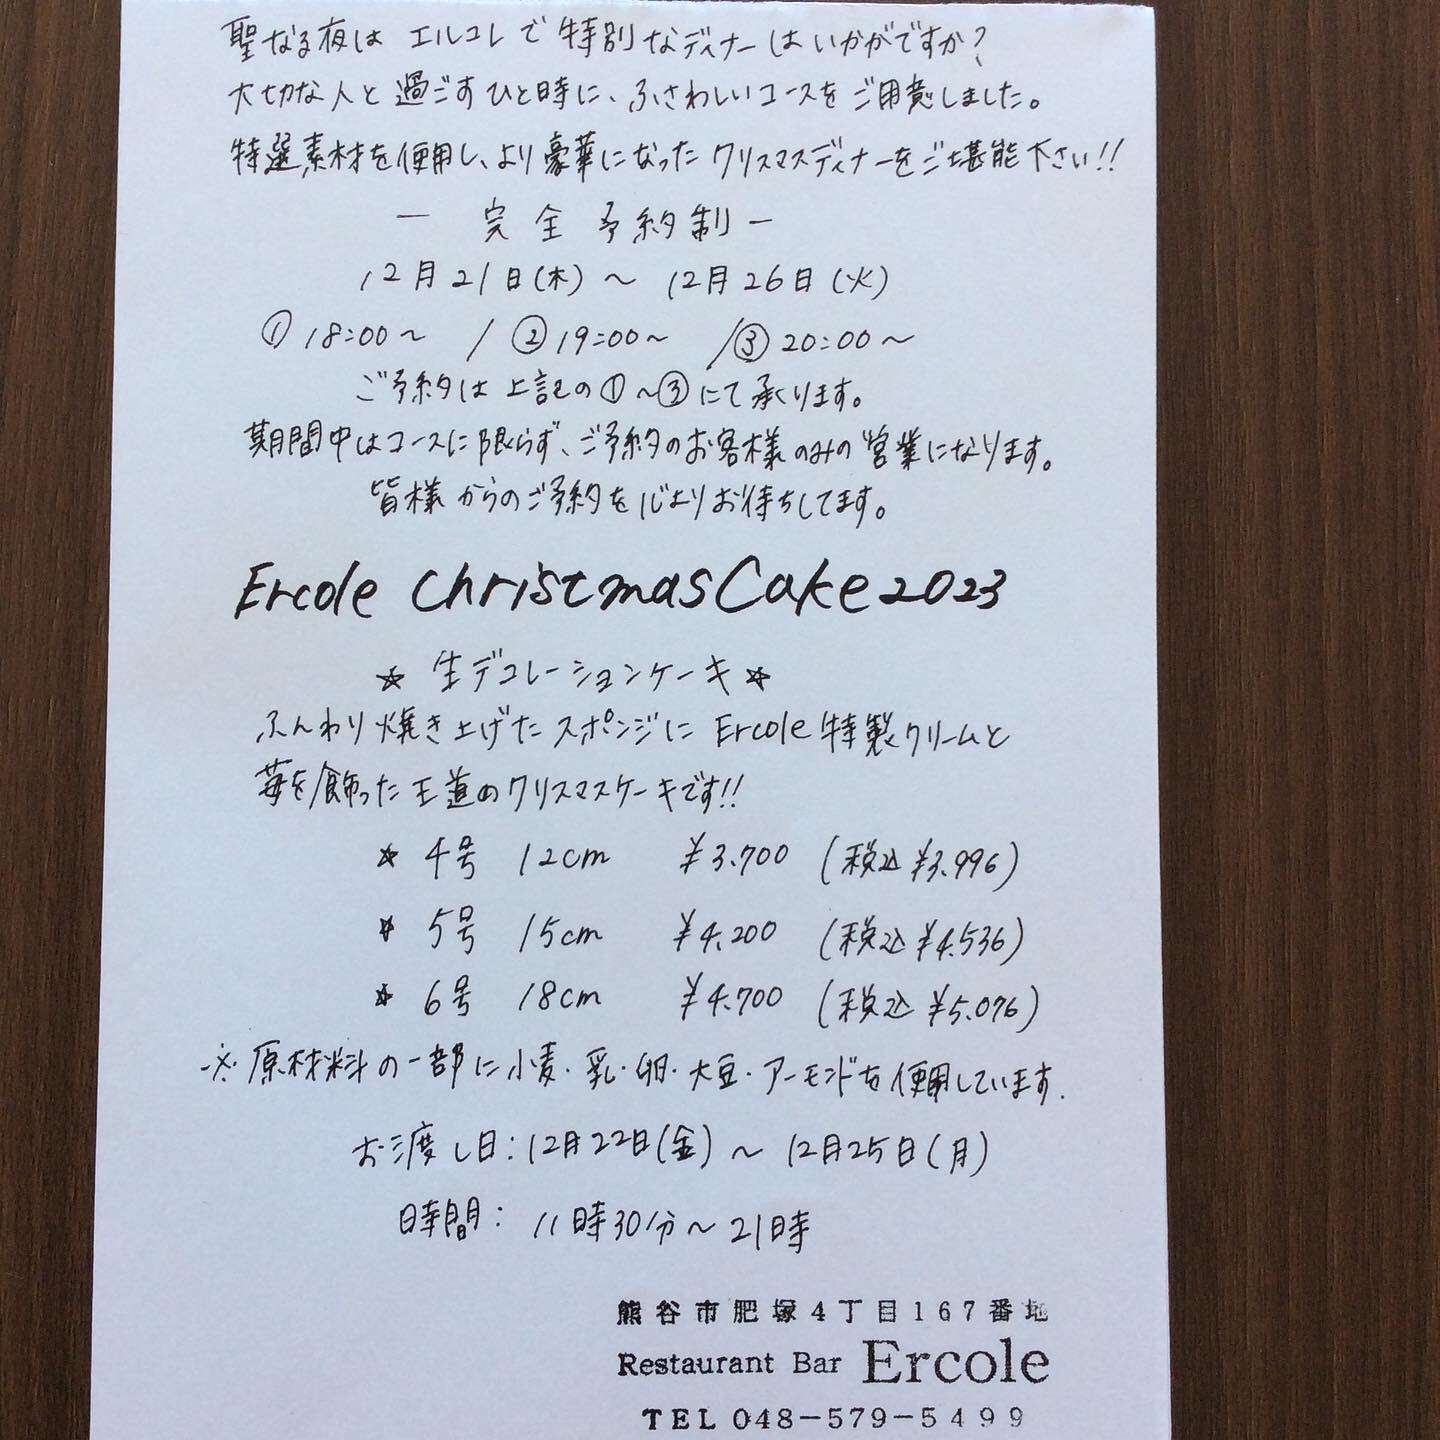 聖なる夜は エルコレで 特別なディナーはいかがですか?
大切な人と過ごすひと時に、ふさわしいコースをご用意しました。
特選素材を使用し、より豪華になったクリスマスディナーをご堪能下さい!!
― 完全予約制 ―
12月21日(木)〜12月26日(火)
①18:00〜 /②19:00〜 /③20:00〜
ご予約は上記の①〜③にて承ります。
期間中はコースに限らず、ご予約のお客様のみの営業になります。
皆様からのご予約を心よりお待ちしてます。
Ercole Christmas Cake 2023
☆ 生デコレーションケーキ ☆
ふんわり焼き上げたスポンジにErcole特製クリームと
苺を飾った王道のクリスマスケーキです!!
☆ 4号 12cm ¥3.700 (税込¥3.996)
☆ 5号 15cm ¥4.200 (税込¥4.536)
☆ 6号 18cm ¥4.700 (税込¥5.076)
※原材料の一部に小麦・乳・卵・大豆・アーモンドを使用しています.
お渡し日:12月22日(金)〜12月25日(月)
時間: 11時30分〜21時
熊谷市肥塚4丁目167番地
Restaurant Bar Ercole
TEL 048-579-5499